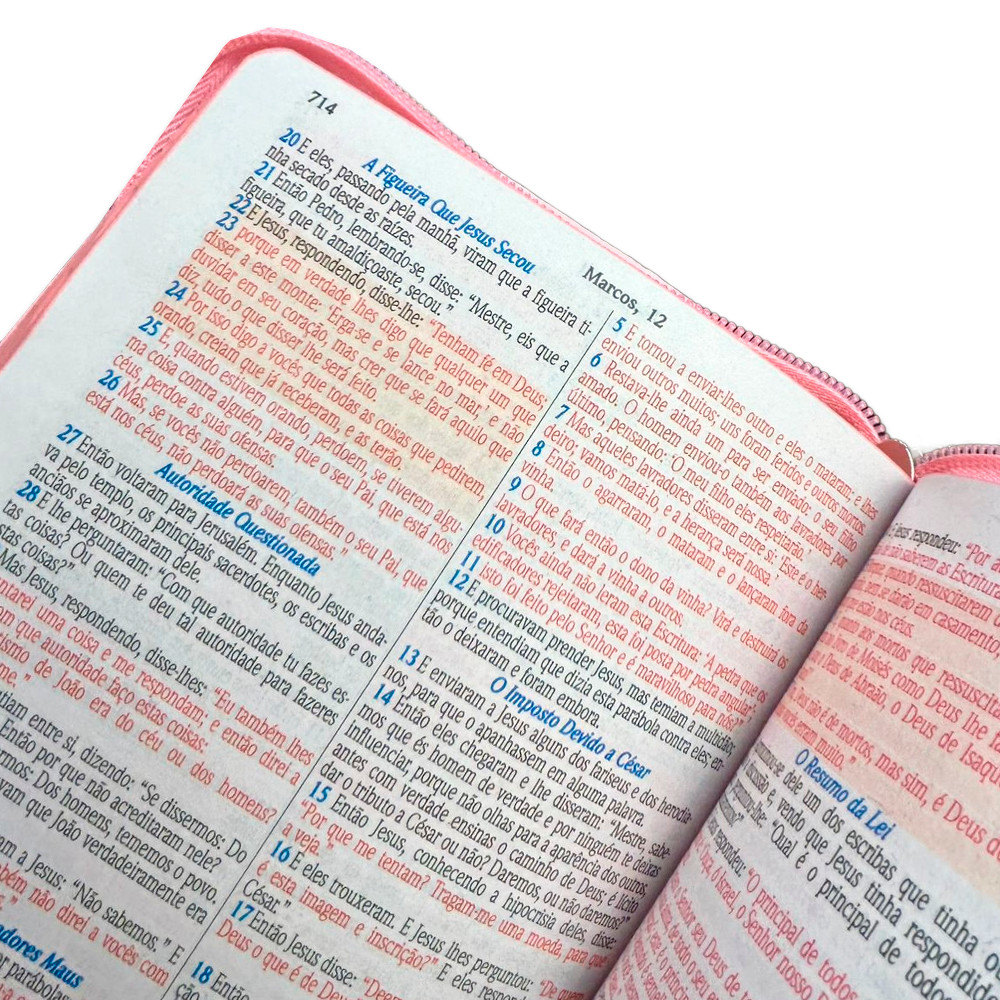 714
Marcos, 12
A Figueira Que Jesus Secou
20 E eles, passando pela manhã, viram que a figueira ti-
nha secado desde as raízes.
21 Então Pedro, lembrando-se, disse: “Mestre, eis que a
figueira, que tu amaldiçoaste, secou.”
22 E Jesus, respondendo, disse-lhe: “Tenham fé em Deus;
23 porque em verdade lhes digo que qualquer um que
disser a este monte: ‘Erga-se e se lance no mar,’ e não
duvidar em seu coração, mas crer que se fará aquilo que
diz, tudo o que disser lhe será feito.
24 Por isso digo a vocês que todas as coisas que pedirem
orando, creiam que já receberam, e as terão.
25 E, quando estiverem orando, perdoem, se tiverem algu-
ma coisa contra alguém, para que o seu Pai, que está nos
céus, perdoe as suas ofensas.
26 Mas, se vocês não perdoarem, também o seu Pai, que
está nos céus, não perdoará as suas ofensas.”
Autoridade Questionada
27 Então voltaram para Jerusalém. Enquanto Jesus anda-
va pelo templo, os principais sacerdotes, os escribas e os
anciãos se aproximaram dele.
28 E lhe perguntaram: “Com que autoridade tu fazes es-
tas coisas? Ou quem te deu tal autoridade para fazeres
stas coisas?”
Mas Jesus, respondendo, disse-lhes: “Eu também lhes
tarei uma coisa e me respondam; e então direi a
m que autoridade faço estas coisas:
tismo de João era do céu ou dos homens?
me.”
tiam entre si, dizendo: “Se dissermos: Do
Então por que não acreditaram nele?
rmos: Dos homens, tememos o povo,
vam que João verdadeiramente era
am a Jesus: “Não sabemos.” E
mbém não direi a vocês com
adores Maus
ar parábolas
5 E tornou a enviar-lhes outro e eles o mataram; e lhes
enviou outros muitos; uns foram feridos e outros mortos.
6 Restava-lhe ainda um para ser enviado: o seu filho
amado. O homem enviou-o também aos lavradores, por
último, pensando: ‘O meu filho eles respeitarão.’
7 Mas aqueles lavradores disseram entre si: ‘Este é o her-
deiro; vamos matá-lo, e a herança será nossa.’
8 Então o agarraram, o mataram e o lançaram fora da
vinha.
9 O que fará então o dono da vinha? Virá e destruirá os
lavradores, e dará a vinha a outros.
10 Vocês ainda não leram esta Escritura: A pedra que os
edificadores rejeitaram, esta foi posta por pedra angular;
11 isto foi feito pelo Senhor e é maravilhoso para nós?”
12 E procuravam prender Jesus, mas temiam a multidão;
porque entendiam que dizia esta parábola contra eles; en-
tão o deixaram e foram embora.
O Imposto Devido a César
13 E enviaram a Jesus alguns dos fariseus e dos herodia-
nos, para que o apanhassem em alguma palavra.
14 Então eles chegaram e lhe disseram: “Mestre, sabe-
mos que és homem de verdade e por ninguém te deixas
influenciar, porque não olhas para a aparência dos outros,
antes com verdade ensinas o caminho de Deus; é lícito
dar o tributo a César ou não? Daremos, ou não daremos?”
15 Então Jesus, conhecendo a hipocrisia deles, disse:
“Por que me tentam? Tragam-me uma moeda, para que
a veja.”
16 E eles trouxeram. E Jesus lhes perguntou: “De quem
é esta imagem e inscrição?” E eles
César.”
17 Então Jesus disse: “Deem
Deus o que é de Deus
18 Então
ção,
Jesus respondeu: “Por a
as Escrituras
ressuscitarem
em casamento
estão nos céus.
aos mortos que ressuscita
de Moisés como Deus lhe fa
de Abraão, o Deus de Isaque
de mortos, mas sim, é Deus d
muito.”
O Resumo da Lei
se dele um dos escribas que tinha o
e vendo que Jesus tinha respondid
“Qual é o principal de todo
“O principal de todos
Israel, o Senhor nosso
o seu Deus de